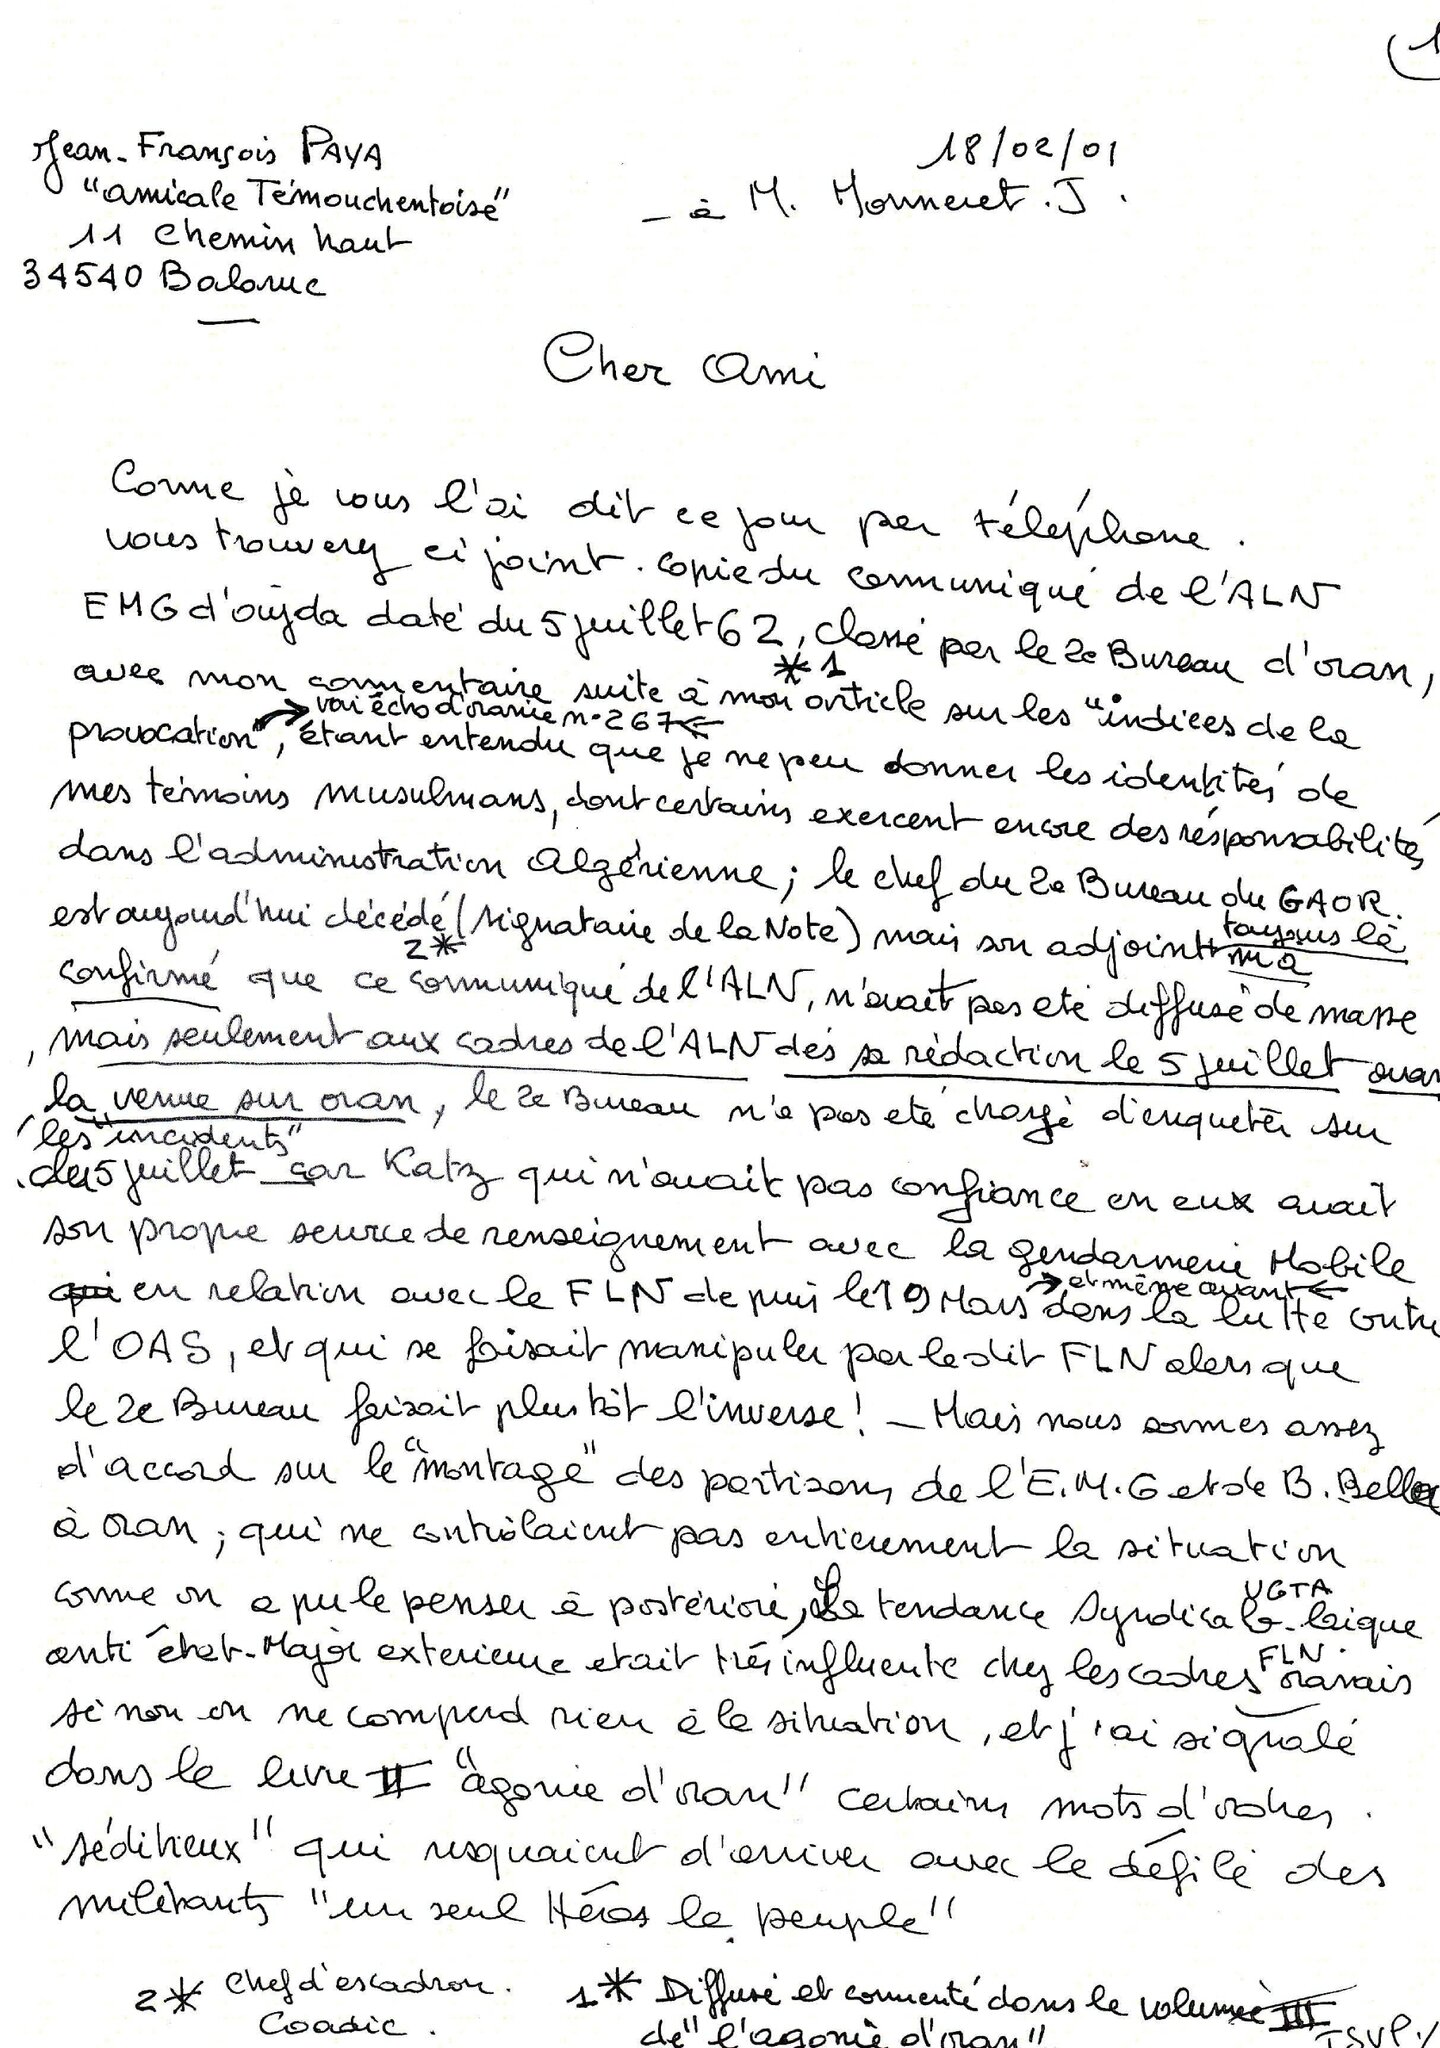 1
Jean-François PAYA
"amicale Témouchentoise"
11 Chemin haut
34540 Balaruc
18/02/01
- à M. Monneret. J.
Cher Ami
Comme je vous l'ai dit ce jour par téléphone.
vous trouverez ci joint. copie du communiqué de l'ALN
EMG d'oujda daté du 5 juillet 62, classé par le 2e Bureau d'oran,
*1
avec mon commentaire suite à mon article sur les "indices de la
voir écho d'oranie n° 267
provocation", étant entendu que je ne peu donner les identités de
mes témoins musulmans, dont certains exercent encore des résponsabilités
dans l'administration Algérienne; le chef du 2e Bureau du GAOR.
est aujourd'hui décédé (signataire de la Note) mais son adjoint toujours là
2*
m'a
confirmé que ce communiqué de l'ALN, n'avait pas eté diffusé de masse
, mais seulement aux cadres de l'ALN dés sa rédaction le 5 juillet avan
la venue sur oran, le 2e Bureau n'a pas eté chargé d'enquetér sur
les "incidents"
du 5 juillet car Katz qui n'avait pas confiance en eux avait
son propre source de renseignement avec la gendarmerie Mobile
qui en relation avec le FLN depuis le 19 Mars et même avant dans la lutte contre
l'OAS, et qui se faisait manipuler par le dit FLN alors que
le 2e Bureau faisait plustôt l'inverse! - Mais nous sommes assez
d'accord sur le "montage" des partisans de l'E.M.G et de B. Bella
à oran; qui ne contrôlaient pas entierement la situation
comme on a pu le penser à postériori, La tendance Syndicale UGTA laique
anti état-Major exterieure etait trés influente chez les cadres FLN. oranais
si non on ne comprend rien à la situation, et j'ai signalé
dans le livre II "agonie d'oran" certains mots d'ordres.
"séditieux" qui risquaient d'arriver avec le défilé des
militants "un seul Héros le peuple"
2* Chef d'escadron.
Coadic.
1* Diffusé et commenté dans le volume III
de "l'agonie d'oran"
TSVP